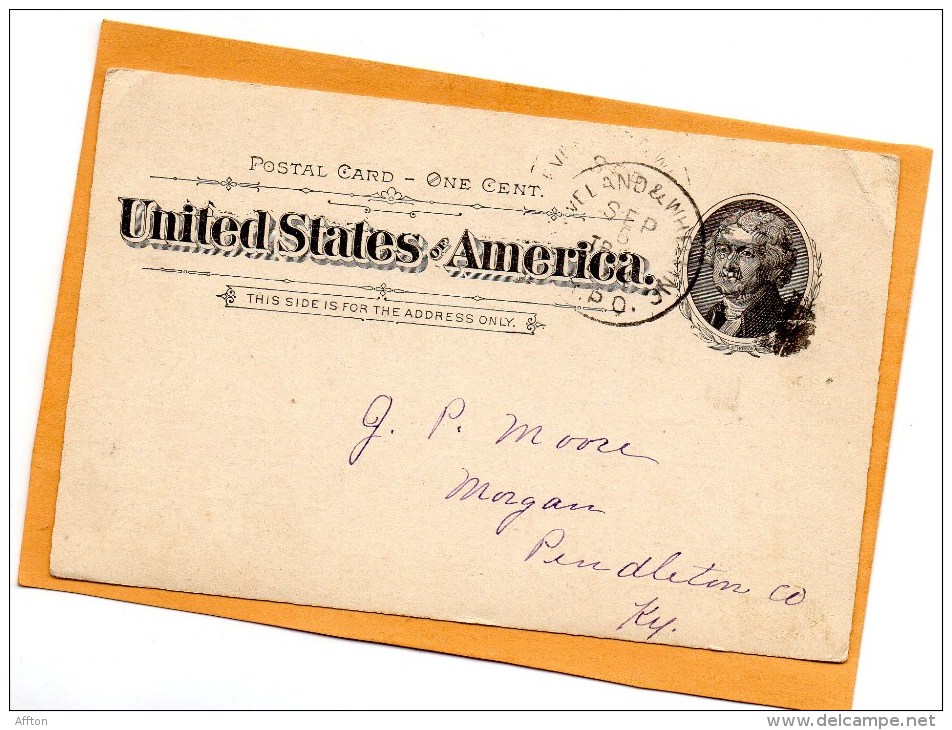 POSTAL CARD - ONE CENT.
United States of America.
THIS SIDE IS FOR THE ADDRESS ONLY.
VELAND & WHEELING
SEP
P.O.
J. P. Moore
Morgan
Pendleton Co
Ky.
Affton
www.delcampe.net